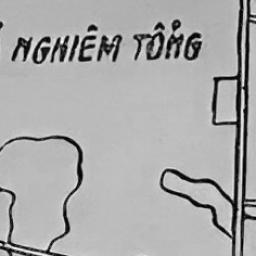 NGHIÊM TỐNG